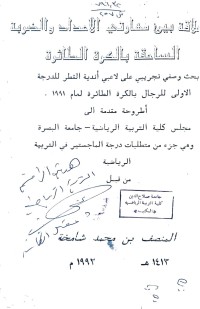 علاقة بين مهارتي الأعداد والضربة
الساحقة بالكرة الطائرة
بحث وصفي تجريبي على لاعبي أندية القطر للدرجة
الاولى للرجال بالكرة الطائرة لعام ١٩٩١
أطروحة مقدمة الى
مجلس كلية التربية الرياضية - جامعة البصرة
وهي جزء من متطلبات درجة الماجستير في التربية
الرياضية
من قبل
جامعة صلاح الدين
كلية التربية الرياضية
المكتبة
المنصف بن محمد شامخة
١٤١٣ هـ ١٩٩٢ م